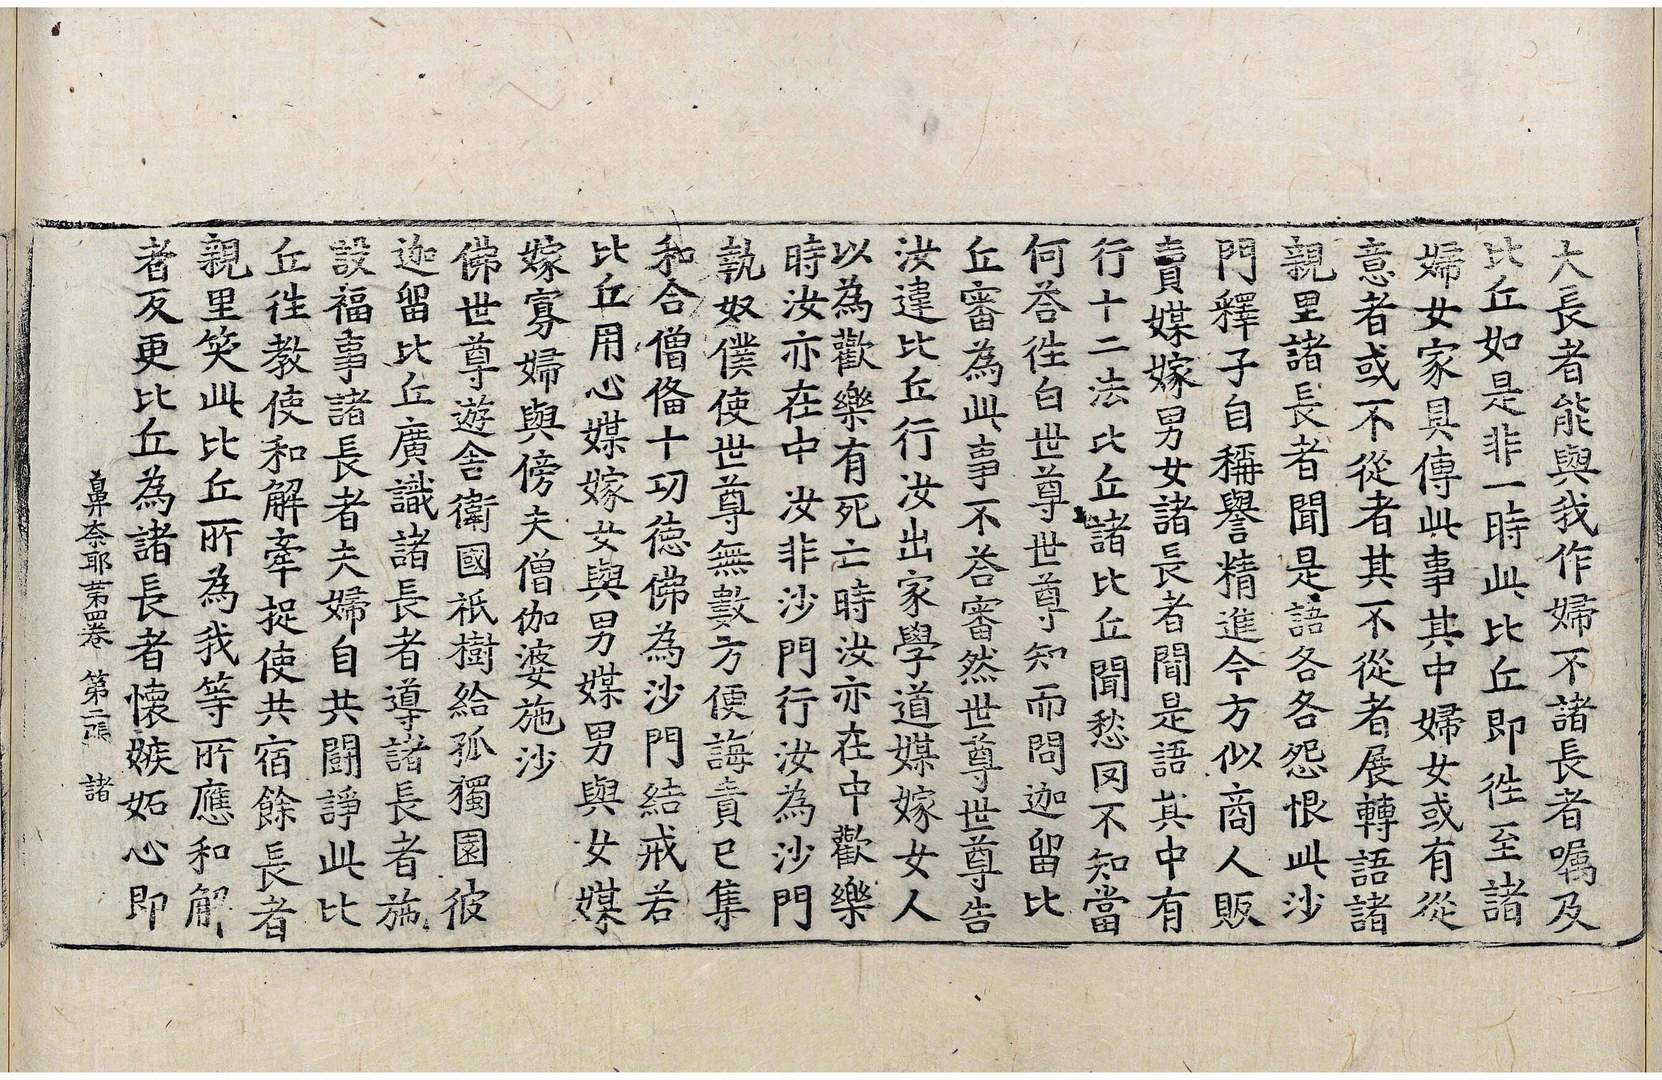 大長者能與我作婦不諸長者囑及
比丘如是非一時此比丘即徃至諸
婦女家具傳此事其中婦女或有從
意者或不從者其不從者展轉語諸
親里諸長者聞是語各各怨恨此沙
門釋子自稱譽精進今方似商人販
賣媒嫁男女諸長者聞是語其中有
行十二法比丘諸比丘聞愁罔不知當
何荅徃白世尊世尊知而問迦留比
丘審為此事不荅審然世尊世尊告
汝違比丘行汝出家學道媒嫁女人
以為歡樂有死亡時汝亦在中歡樂
時汝亦在中汝非沙門行汝為沙門
執奴僕使世尊無數方便誨責已集
和合僧俻十功德佛為沙門結戒若
比丘用心媒嫁女與男媒男與女媒
嫁寡婦與傍夫僧伽婆施沙
佛世尊遊舍衛國祇樹給孤獨園彼
迦留比丘廣識諸長者導諸長者施
設福事諸長者夫婦自共鬪諍此比
丘徃教使和解牽捉使共宿餘長者
親里笑此比丘所為我等所應和解
者反更比丘為諸長者懷嫉妬心即
鼻奈耶第四卷 第二張 諸